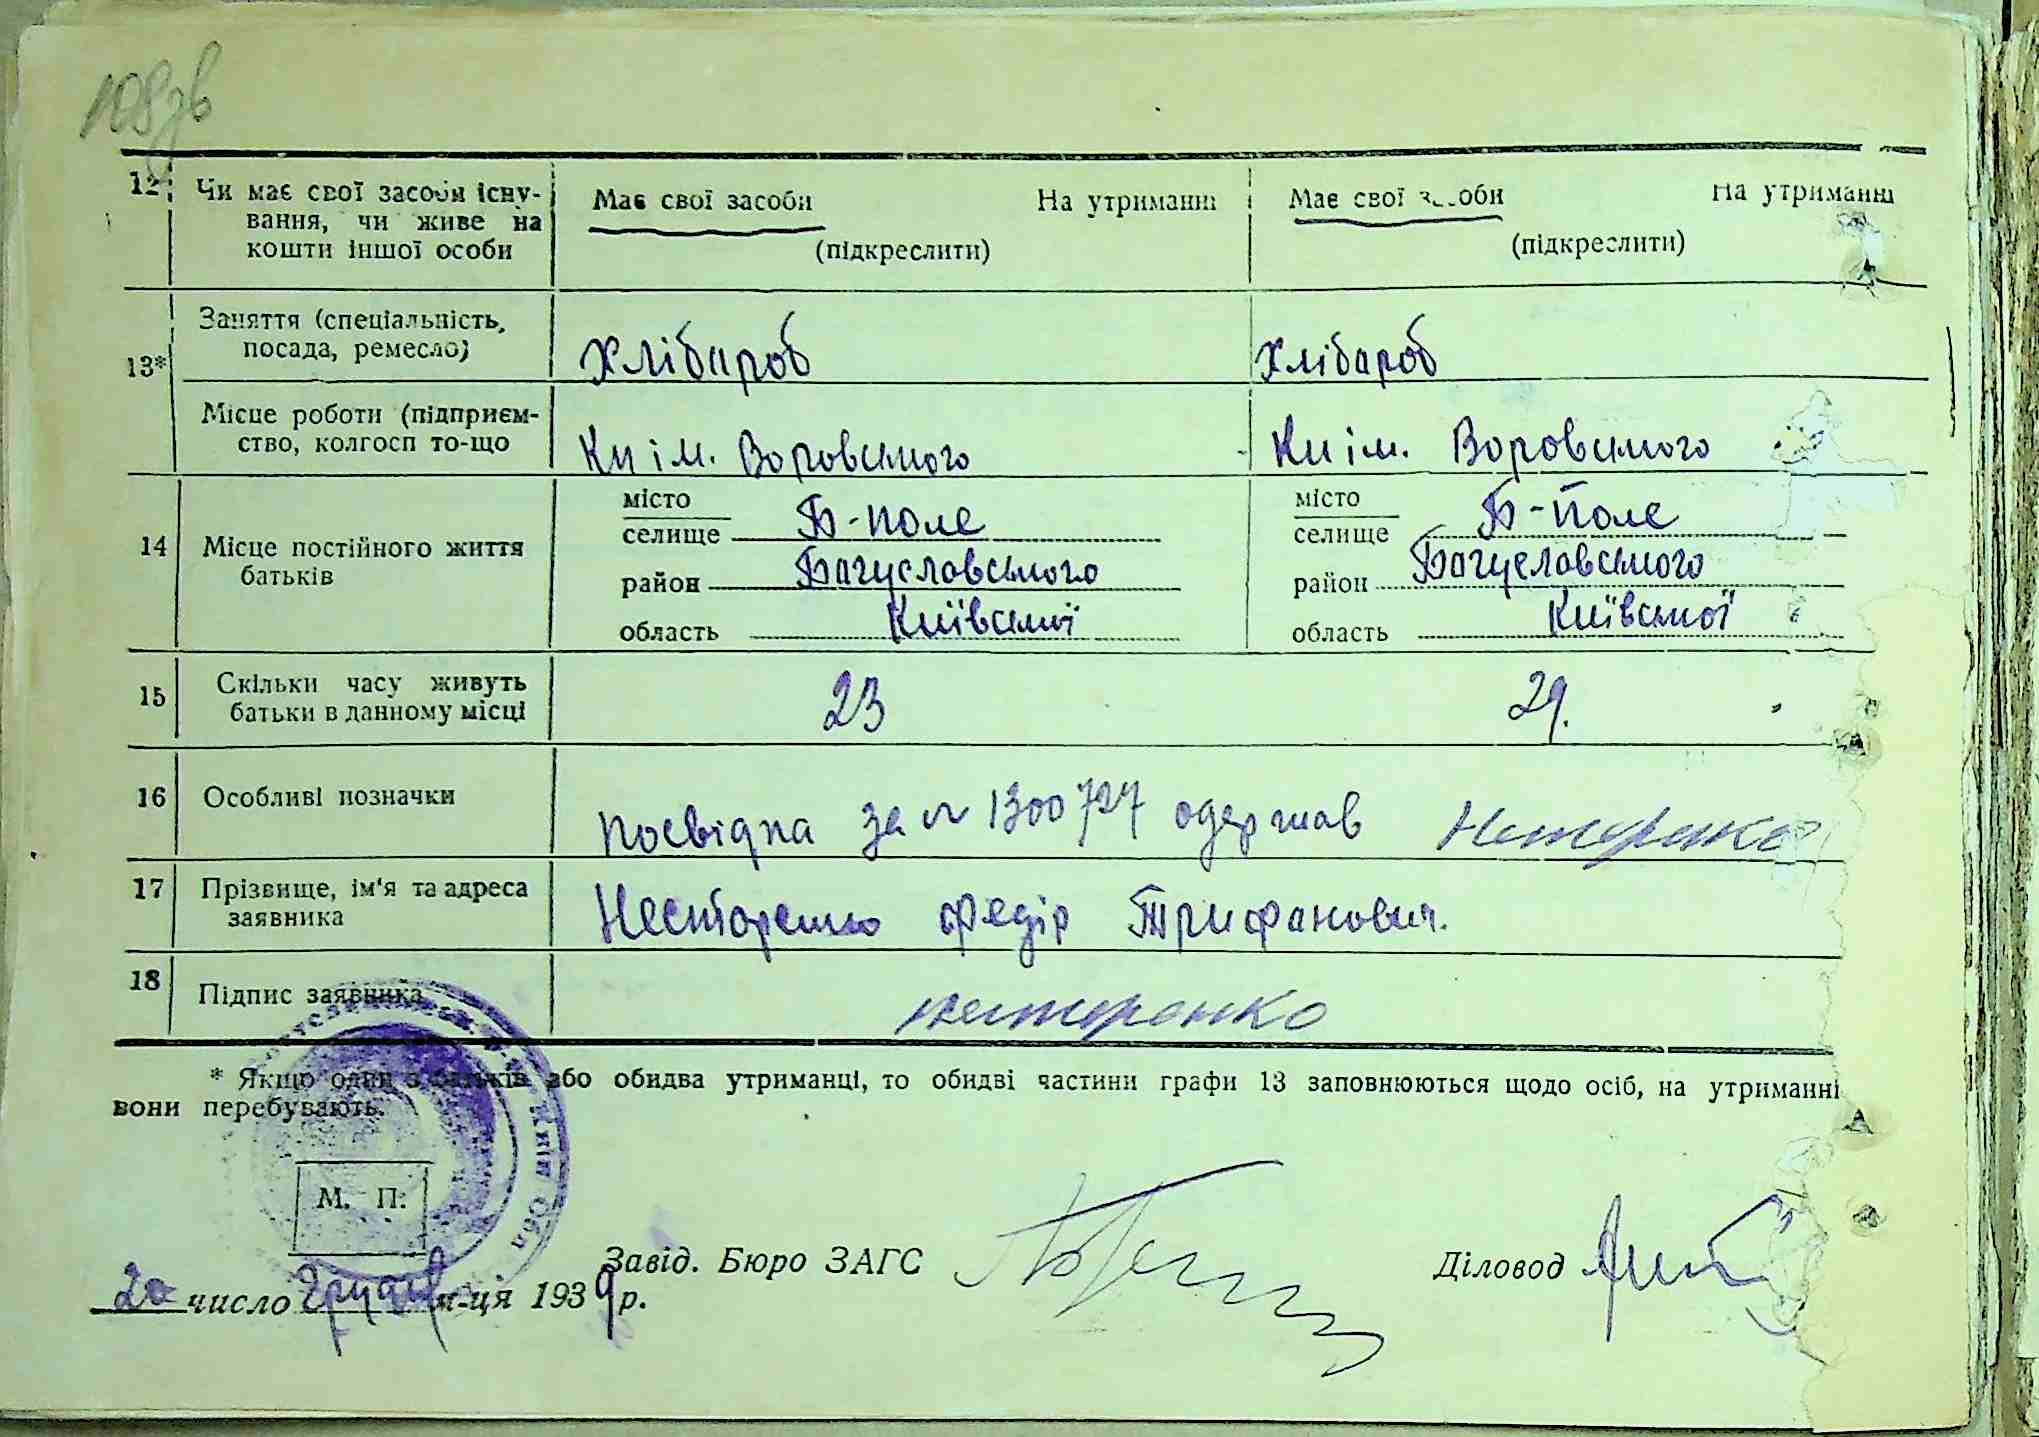 108зв
12 Чи має свої засоби існу-
вання, чи живе на
кошти іншої особи
Має свої засоби На утриманні
(підкреслити)
Має свої засоби На утриманні
(підкреслити)
13* Заняття (спеціальність,
посада, ремесло)
Хлібароб
Хлібароб
Місце роботи (підприєм-
ство, колгосп то-що
Кп ім. Воровського
Кп ім. Воровського
14 Місце постійного життя
батьків
місто
селище Б-поле
район Богуславського
область Київської
місто
селище Б-Поле
район Богуславського
область Київської
15 Скільки часу живуть
батьки в данному місці
23
29.
16 Особливі позначки
посвідка за № 1300727 одержав Нетеренко
17 Прізвище, ім'я та адреса
заявника
Несторенко Федір Трифанович.
18 Підпис заявника
нестеренко
* Якщо один з батьків або обидва утриманці, то обидві частини графи 13 заповнюються щодо осіб, на утриманні
вони перебувають.
Київ Обл
М. П.
Завід. Бюро ЗАГС
Діловод
20 число Грудня м-ця 1939 р.